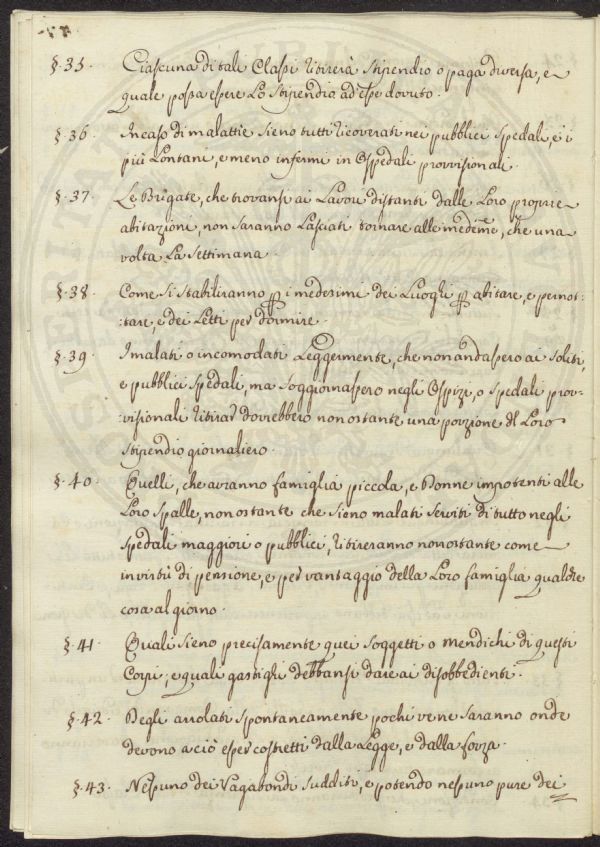 §. 35. Ciascuna di tali Classi ritirerà stipendio o paga diversa, e
quale possa essere Lo stipendio ad esse dovuto.
§. 36. In caso di malattie sieno tutti ricoverati nei pubblici spedali, e i
più Lontani, e meno infermi in Ospedali provvisionali.
§. 37. Le Brigate, che trovansi ai Lavori distanti dalle Loro proprie
abitazioni, non saranno Lasciati tornare alle medeme, che una
volta La settimana.
§. 38. Come si stabiliranno per i medesimi dei Luoghi per abitare, e pernot:
:tare, e dei Letti per dormire.
§. 39. I malati o incomodati Leggermente, che non andassero ai soliti,
e pubblici spedali, ma soggiornassero negli Ospizi, o spedali prov:
:visionali ritirar dovrebbero nonostante una porzione del Loro
stipendio giornaliero.
§. 40. Quelli, che avranno famiglia piccola, e Donne impotenti alle
Loro spalle, nonostante che sieno malati serviti di tutto negli
spedali maggiori o pubblici, ritireranno nonostante come
in virtù di pensione, e per vantaggio della Loro famiglia qualche
cosa al giorno.
§. 41. Quali sieno precisamente quei soggetti o mendichi di questi
Corpi, e quali gastighi debbansi dare ai disobbedienti.
§. 42. Degli arrolati spontaneamente pochi ve ne saranno onde
devono a ciò esser costretti dalla Legge, e dalla forza.
§. 43. Nessuno dei Vagabondi sudditi, e potendo nessuno pure dei